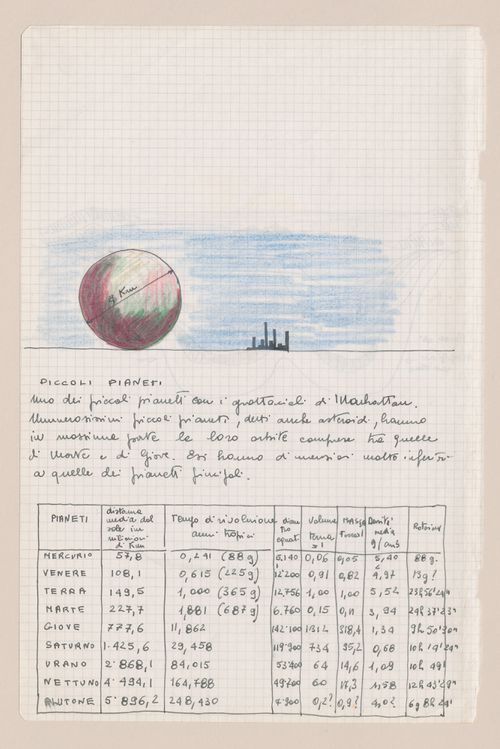 8 Km
PICCOLI PIANETI
Uno dei piccoli pianeti con i grattacieli di Manhattan.
Numerosissimi piccoli pianeti, detti anche asteroidi, hanno
in massima parte le loro orbite comprese tra quelle
di Marte e di Giove. Essi hanno dimensioni molto inferiori
a quelle dei pianeti
PIANETI distanza media dal sole in milioni di Km Tempo di rivoluzione anni tropici diametro equat. Volume Terra=1 MASSA Terra=1 Densità media g/cm3 Rotazione
MERCURIO 57,8 0,241 (88 g) 5,140 0,06 0,05 5,40 88 g.
VENERE 108,1 0,615 (225 g) 12'200 0,91 0,82 4,97 13g?
TERRA 149,5 1,000 (365 g) 12,756 1,00 1,00 5,52 23h 56' 24"
MARTE 227,7 1,881 (687 g) 6.760 0,15 0,11 3,94 24h 37' 23"
GIOVE 777,6 11,862 142'100 1312 318,4 1,34 9h 50' 30"
SATURNO 1.425,6 29,458 119'300 734 95,2 0,68 10h 14' 24"
URANO 2'868,1 84,015 53'400 64 14,6 1,09 10h 49'
NETTUNO 4'494,1 164,788 49'700 60 17,3 1,58 12h 43'
PLUTONE 5'896,2 248,430 0,2? 0,9? 6g 8h 24'